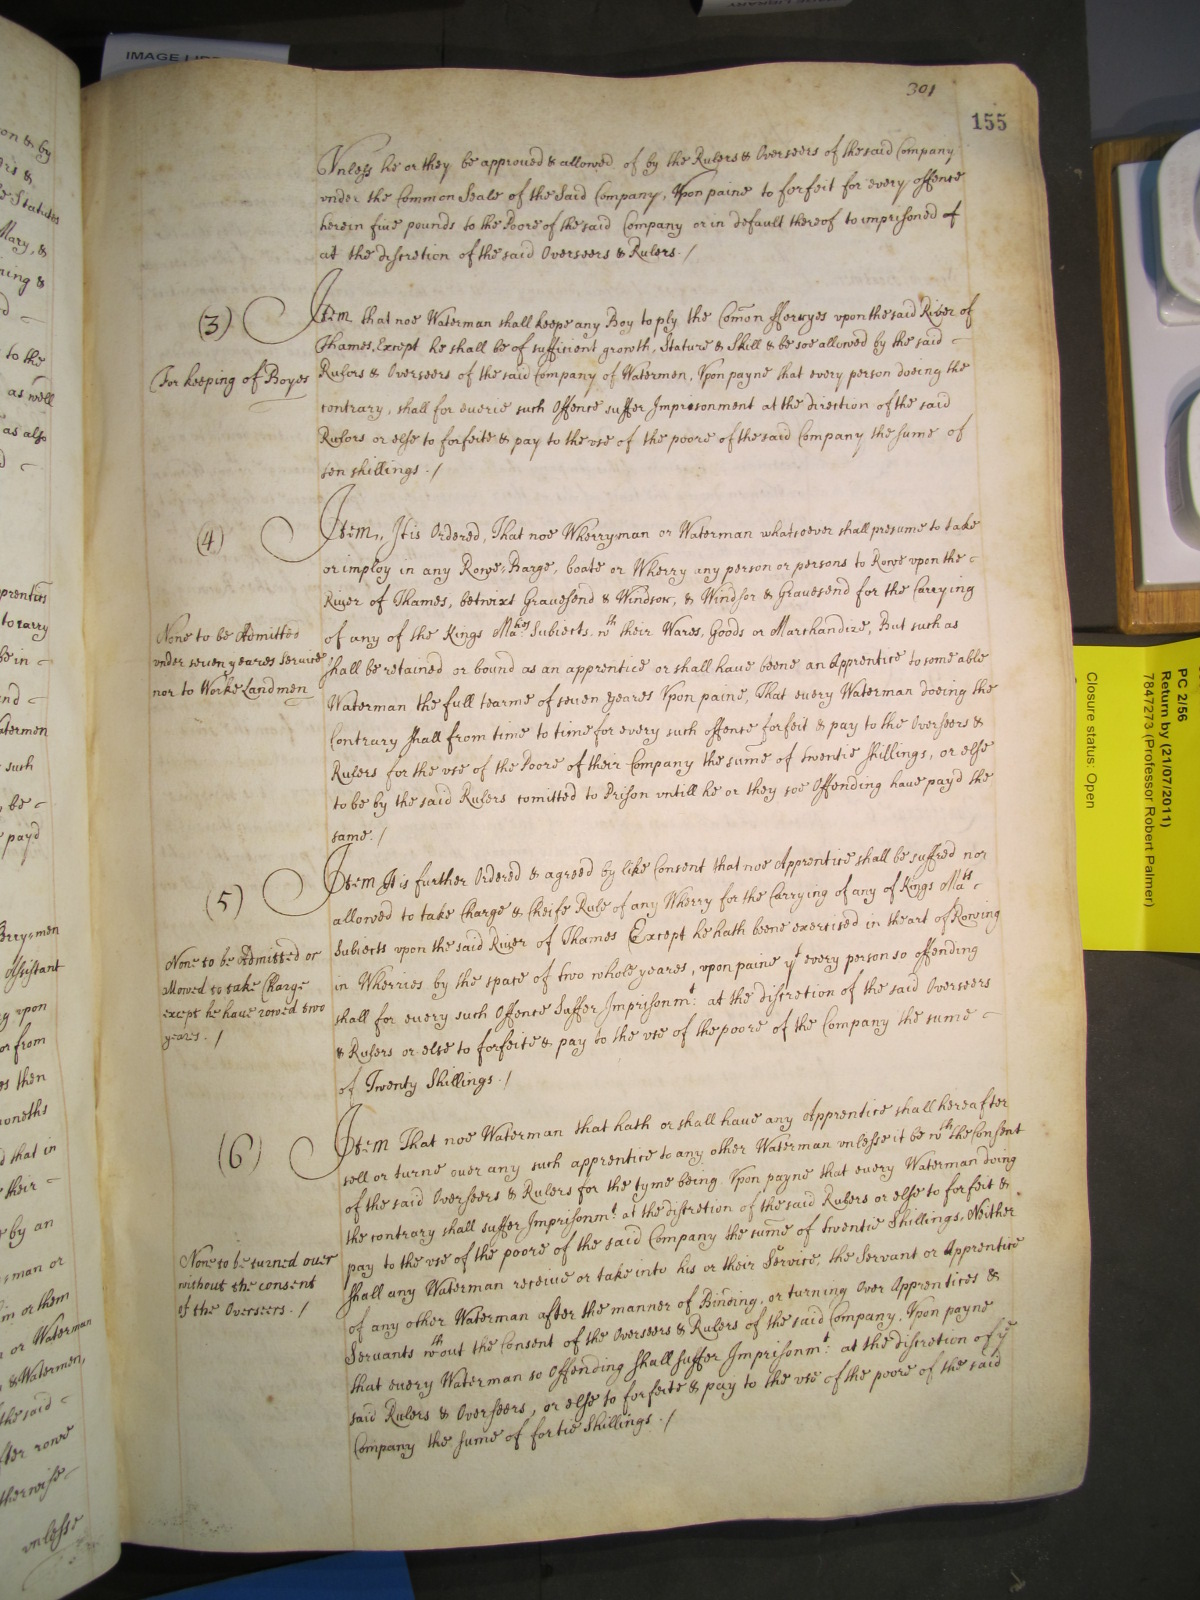 IMAGE LIBRARY
301
155
Vnless he or they be approued & allowed of by the Rulers & Overseers of the said Company
vnder the Common Seale of the Said Company, Vpon paine to forfeit for every offence
herein fiue pounds to the Poore of the said Company or in default thereof to imprisoned
at the discretion of the said Overseers & Rulers. /
(3)
Item that noe Waterman shall keepe any Boy to ply the Comon fferryes vpon the said River of
Thames, Except he shall be of sufficient growth, Stature & Skill & be soe allowed by the said
For keeping of Boyes
Rulors & Overseers of the said Company of Watermen, Vpon payne that every person doeing the
contrary, shall for euerie such Offence suffer Imprisonment at the direction of the said
Rulors or else to forfeite & pay to the vse of the poore of the said Company the sume of
ten shillings. /
(4)
Item, It is Ordered, That noe Wherryman or Waterman whatsoever shall presume to take
or imploy in any Rowe-Barge, boate or Wherry any person or persons to Rowe vpon the
River of Thames, betwixt Gravesend & Windsor, & Windsor & Gravesend for the Carrying
of any of the Kings Ma.ties Subiects wth their Wares, Goods or Marchandize, But such as
None to be Admitted
vnder seven yeares service
nor to Worke Landmen
shall be retained or bound as an apprentice or shall have beene an Apprentice to some able
Waterman the full tearme of seuen yeares Vpon paine, That every Waterman doeing the
Contrary shall from time to time for every such offence forfeit & pay to the Overseers &
Rulers for the vse of the Poore of their Company the sume of twentie shillings, or else
to be by the said Rulers comitted to Prison vntill he or they soe Offending haue payd the
same. /
(5)
Item It is further Ordered & agreed by like Consent that noe Apprentice shall be suffred nor
allowed to take Charge & Cheife Rule of any Wherry for the Carrying of any of Kings Mats
Subiects vpon the said River of Thames Except he hath beene exercised in the art of Rowing
None to be Admitted or
allowed to take Charge
except he have rowed two
yeares. /
in Wherries by the space of two whole yeares, vpon paine yt every person so offending
shall for euery such Offence Suffer Imprisonmt: at the discretion of the said Overseers
& Rulers or else to forfeite & pay to the vse of the poore of the Company the sume
of Twenty Shillings. /
(6)
Item That noe Waterman that hath or shall haue any Apprentice shall hereafter
sell or turne ouer any such apprentice to any other Waterman vnlesse it be wth the Consent
of the said Overseers & Rulers for the tyme being. Vpon payne that every Waterman doing
the contrary shall suffer Imprisonmt. at the discretion of the said Rulers or else to forfeit &
pay to the vse of the poore of the said Company the sume of twentie Shillings, Neither
None to be turned over
without the consent
of the Overseers. /
shall any Waterman receiue or take into his or their Service, the Servant or Apprentice
of any other Waterman after the manner of Binding, or turning Over Apprentices &
Servants wthout the Consent of the Overseers & Rulers of the said Company, Vpon payne
that every Waterman so Offending Shall suffer Imprisonmt: at the discretion of ye
said Rulers & Overseers, or else to forfeite & pay to the vse of the poore of the said
Company the sume of fortie Shillings. /
PC 2/56
Return by (21/07/2011)
7847273 (Professor Robert Palmer)
Closure status: Open